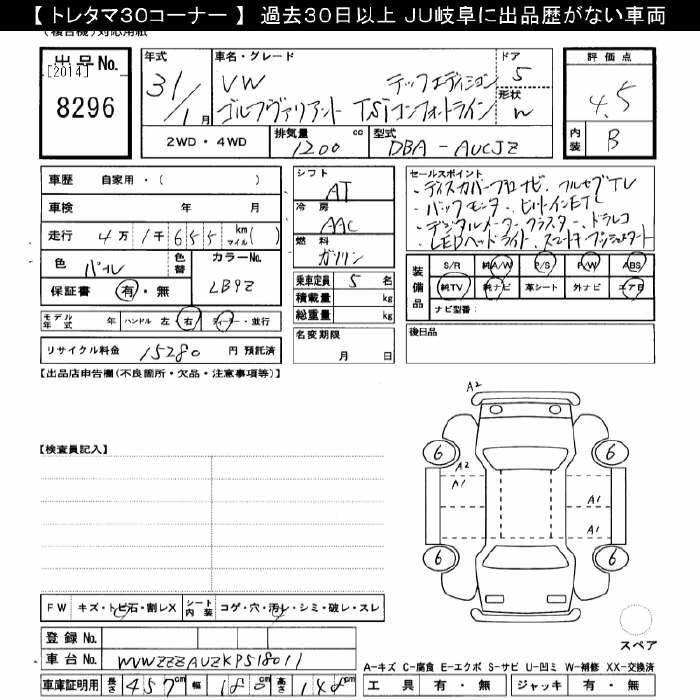 【 トレタマ30コーナー 】 過去30日以上 JU岐阜に出品歴がない車両
(複合機)対応用紙
出品No.
[2014]
8296
年式
31/1月
車名・グレード
VW テックエディション
ゴルフヴァリアント TSIコンフォートライン
ドア
5
形状
W
評価点
4.5
内装
B
2WD・4WD
排気量
1200 cc
型式
DBA-AUCJZ
車歴 自家用・( )
車検 年 月
走行 4万1千655 km マイル( )
色 パール
色替
カラーNo.
LB9Z
保証書 有・無
モデル年式 年
ハンドル 左・右
ディーラー・並行
リサイクル料金 15280 円 預託済
シフト
AT
冷房
AAC
燃料
ガソリン
乗車定員 5 名
積載量 kg
総重量 kg
名変期限
月 日
セールスポイント
・ディスカバープロナビ、フルセグTV
・バックモニタ、ビルトインETC
・デジタルメータークラスター、ドラレコ
・LEDヘッドライト、スマートキープッシュスタート
装備品
S/R 純A/W P/S P/W ABS
純TV 純ナビ 革シート 外ナビ エアB
ナビ型番:
後日品
【出品店申告欄(不良箇所・欠品・注意事項等)】
【検査員記入】
A2
6
6
A2
A1
A1
A1
6
6
スペア
FW キズ・トビ石・割レX
シート内装 コゲ・穴・汚レ・シミ・破レ・スレ
登録No.
車台No. WVWZZZAUZKP518011
車庫証明用 長さ 457cm 幅 180cm 高さ 148cm
A-キズ C-腐食 E-エクボ S-サビ U-凹ミ W-補修 XX-交換済
工具 有・無 ジャッキ 有・無